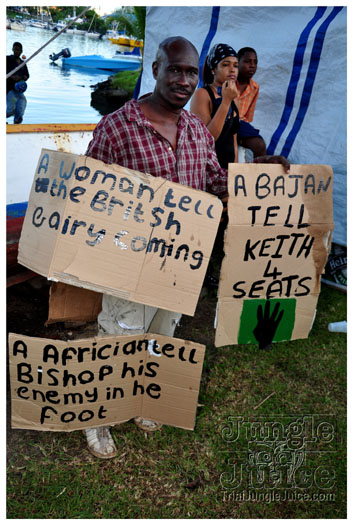 A Woman tell
the British
Gairy coming
A BAJAN
TELL
KEITH
4
SEATS
A Africian tell
Bishop his
enemy in he
Foot
Jungle
Juice
TriniJungleJuice.com